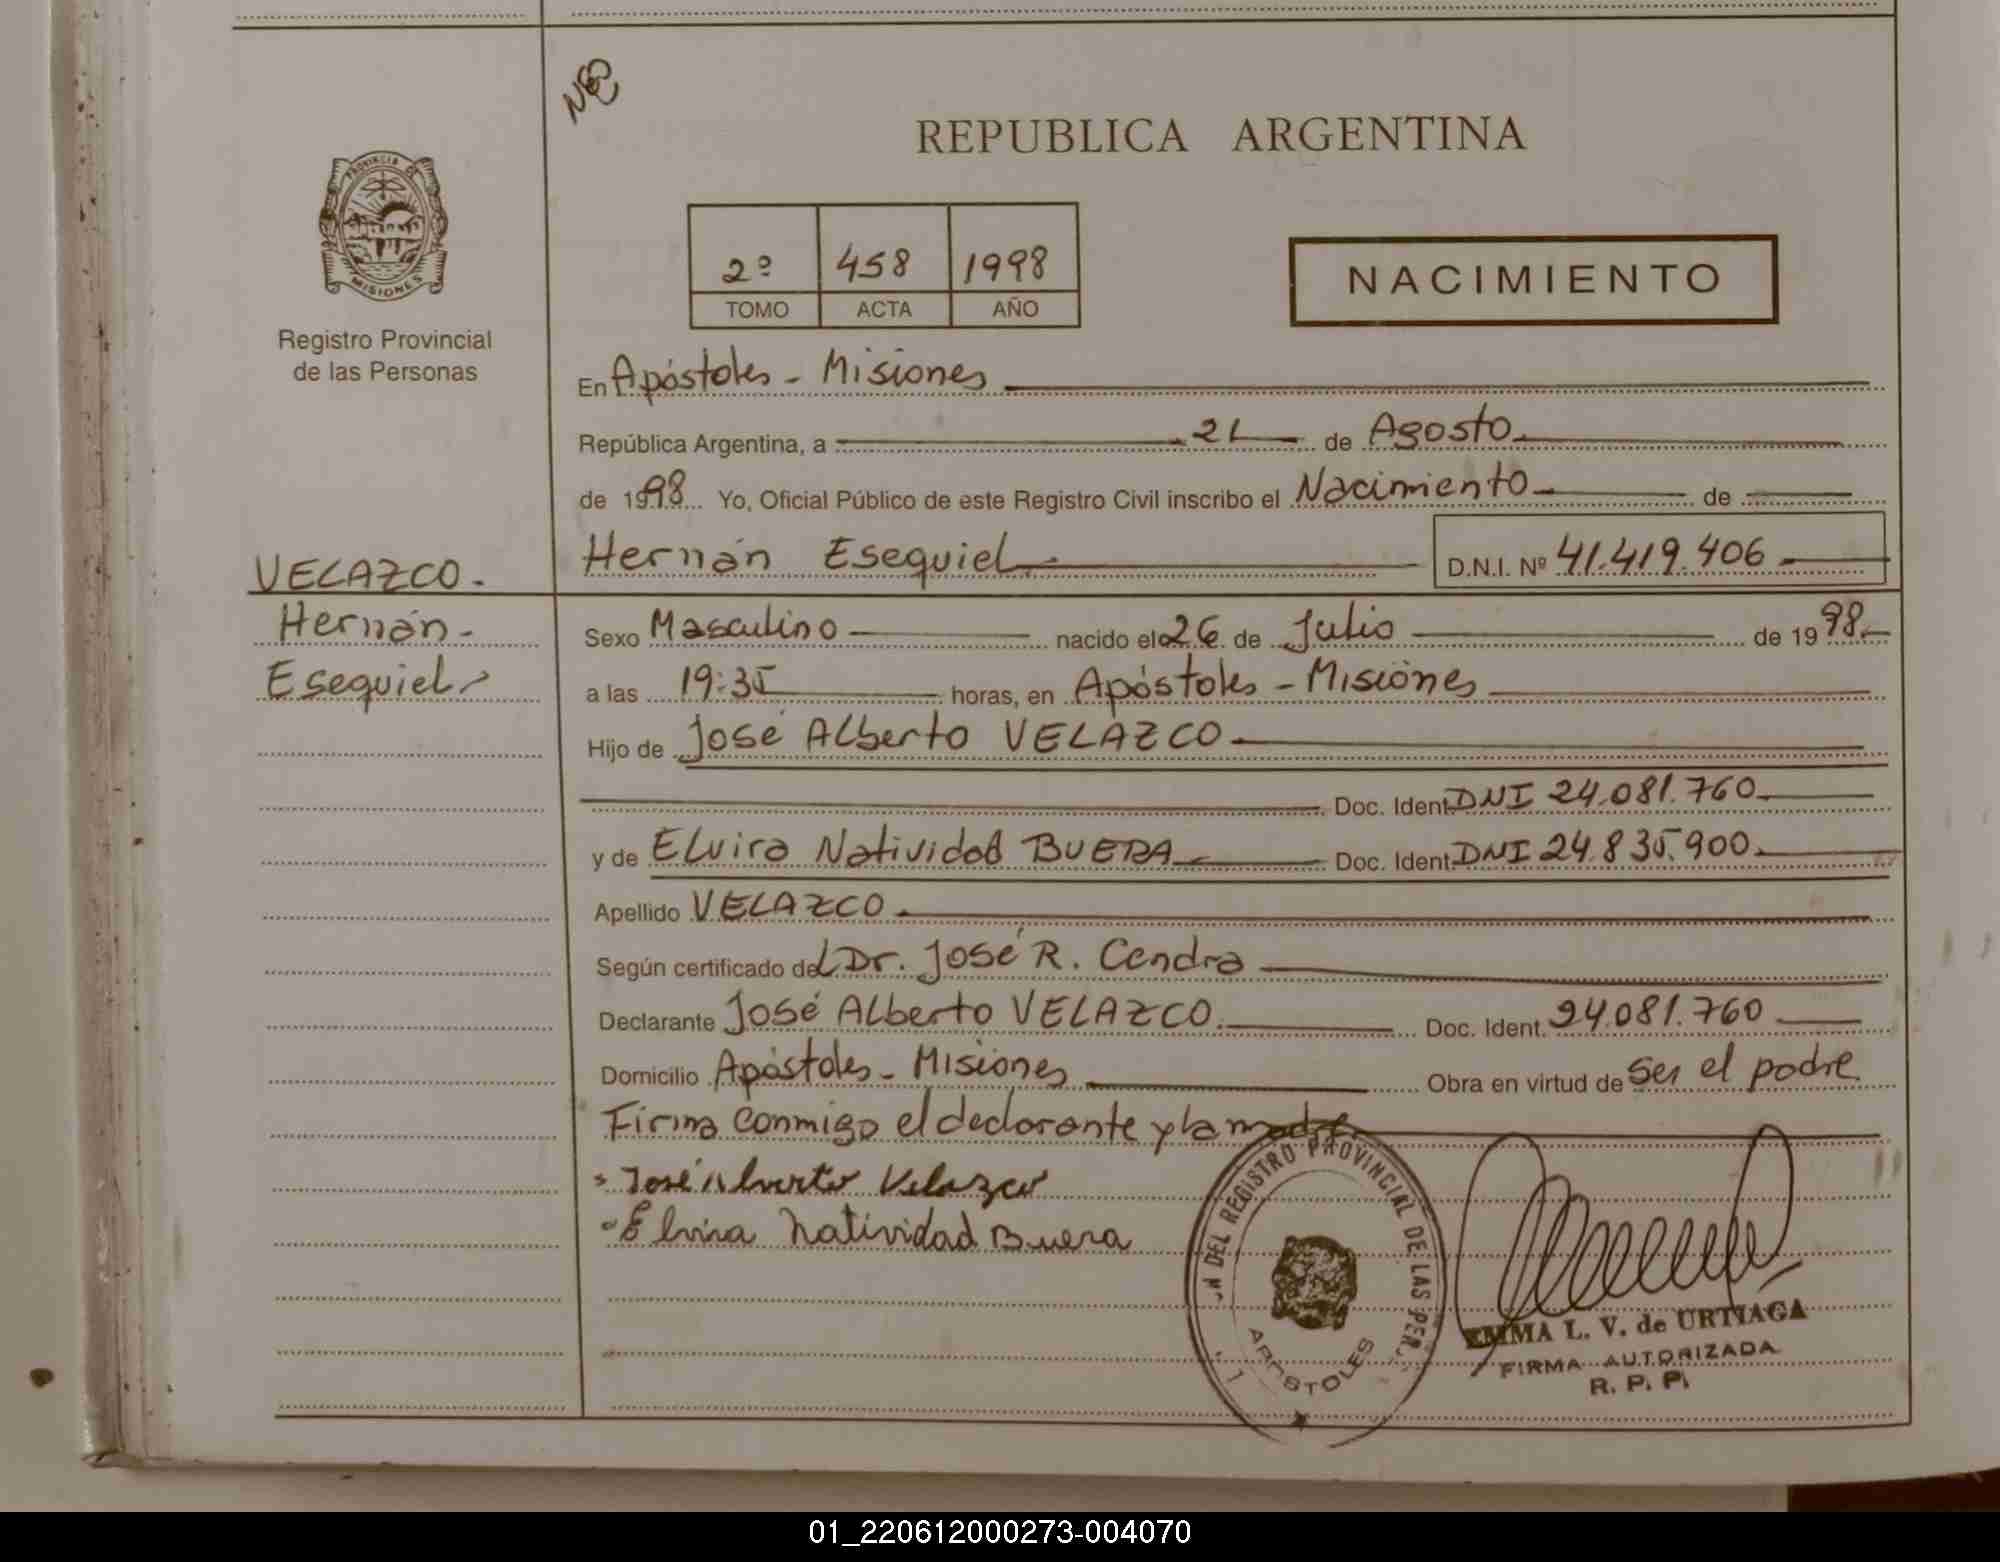 REPUBLICA ARGENTINA
PROVINCIA DE
MISIONES
Registro Provincial
de las Personas
2º 458 1998
TOMO ACTA AÑO
NACIMIENTO
En Apóstoles - Misiones
República Argentina, a 21 de Agosto
de 1998 Yo, Oficial Público de este Registro Civil inscribo el Nacimiento de
Hernán Esequiel D.N.I. Nº 41.419.406
VELAZCO.
Hernán
Esequiel
Sexo Masculino nacido el 26 de Julio de 1998
a las 19:35 horas, en Apóstoles - Misiones
Hijo de José Alberto VELAZCO
Doc. Ident. DNI 24.081.760
y de Elvira Natividad BUERA Doc. Ident. DNI 24.835.900
Apellido VELAZCO
Según certificado del Dr. José R. Cendra
Declarante José Alberto VELAZCO Doc. Ident. 24.081.760
Domicilio Apóstoles - Misiones Obra en virtud de ser el padre
Firma conmigo el declarante y la madre
José Alverto Velazco
Elvira Natividad Buera
DEL REGISTRO PROVINCIAL DE LAS PER
APOSTOLES
EMMA L. V. de URTIAGA
FIRMA AUTORIZADA
R. P. P.
01_220612000273-004070